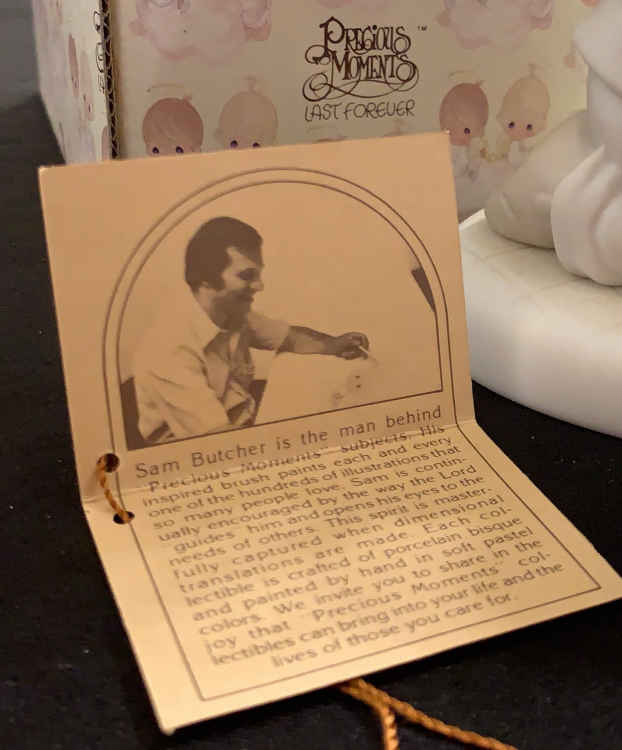 PRECIOUS ™
MOMENTS
LAST FOREVER
Sam Butcher is the man behind
Precious Moments™ subjects. His
inspired brush paints each and every
one of the hundreds of illustrations that
so many people love. Sam is contin-
ually encouraged by the way the Lord
guides him and opens his eyes to the
needs of others. This spirit is master-
fully captured when dimensional
translations are made. Each col-
lectible is crafted of porcelain bisque
and painted by hand in soft pastel
colors. We invite you to share in the
joy that Precious Moments™ col-
lectibles can bring into your life and the
lives of those you care for.